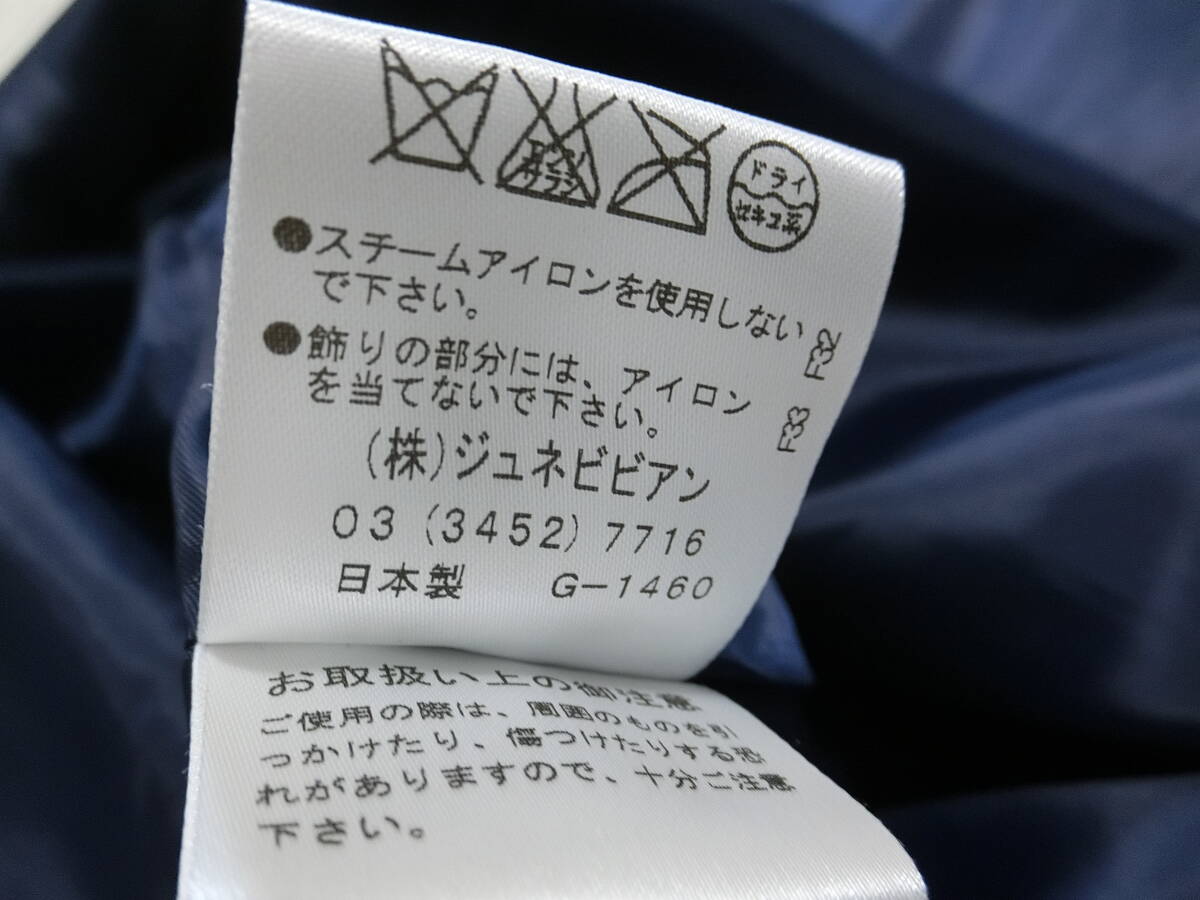 エンソ
サラシ
ドライ
セキユ系
●スチームアイロンを使用しない
で下さい。
●飾りの部分には、アイロン
を当てないで下さい。
F32
F33
(株)ジュネビビアン
03 (3452) 7716
日本製 G-1460
お取扱い上の御注意
ご使用の際は、周囲のものを引
っかけたり、傷つけたりする恐
れがありますので、十分ご注意
下さい。